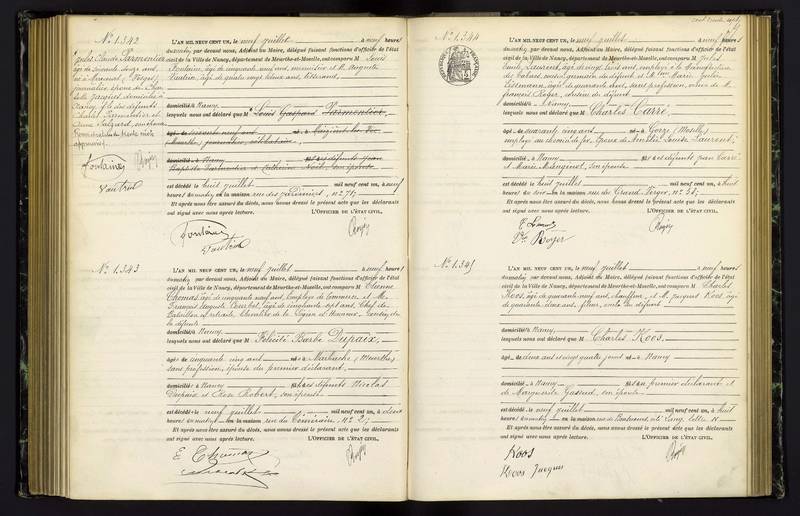 N° 1.342
L'AN MIL NEUF CENT UN, le neuf juillet à neuf heures
du matin par devant nous, Adjoint au Maire, délégué faisant fonctions d'officier de l'état
civil de la Ville de Nancy, département de Meurthe-et-Moselle, ont comparu M Louis
Fontaine, âgé de cinquante neuf ans, menuisier et M. Auguste
Vautrin, âgé de quatre vingt deux ans, tisserand
domiciliés à Nancy
lesquels nous ont déclaré que M Louis Gaspard Parmentier
âgé de soixante neuf ans né à
Meurthe, journalier, célibataire
domicilié à Nancy fils des défunts Jean
Baptiste Parmentier et Catherine Noël, son épouse
est décédé le huit juillet mil neuf cent un, à neuf
heures du matin en la maison rue des Jardiniers, n° 71;
Et après nous être assuré du décès, nous avons dressé le présent acte que les déclarants
ont signé avec nous après lecture. L'OFFICIER DE L'ÉTAT CIVIL,
Fontaine
Vautrin
Jules Claude Parmentier
âgé de soixante douze ans
né à (Vosges)
journalier, époux de
Jacques domiciliés à
Nancy, fils des défunts
Charles Parmentier et
Anne
Fontaine
Vautrin
N° 1.343
L'AN MIL NEUF CENT UN, le neuf juillet à neuf heures
du matin par devant nous, Adjoint au Maire, délégué faisant fonctions d'officier de l'état
civil de la Ville de Nancy, département de Meurthe-et-Moselle, ont comparu M Étienne
Thomas, âgé de cinquante neuf ans, Employé de Commerce et M.
François Auguste âgé de cinquante sept ans, Chef de
Bataillon en retraite, Chevalier de la Légion d'Honneur,
la défunte
domiciliés à Nancy
lesquels nous ont déclaré que M Félicité Barbe Dupaix,
âgée de cinquante cinq ans née à Marbache (Meurthe)
sans profession, épouse du premier déclarant
domiciliée à Nancy fille des défunts Nicolas
Dupaix et Rose Robert, son épouse
est décédée le neuf juillet mil neuf cent un, à deux
heures du matin en la maison rue du Téméraire, n° 2;
Et après nous être assuré du décès, nous avons dressé le présent acte que les déclarants
ont signé avec nous après lecture. L'OFFICIER DE L'ÉTAT CIVIL,
E Thomas
N° 1.344
L'AN MIL NEUF CENT UN, le neuf juillet à neuf heures
du matin par devant nous, Adjoint au Maire, délégué faisant fonctions d'officier de l'état
civil de la Ville de Nancy, département de Meurthe-et-Moselle, ont comparu M Jules
Émile Laurent, âgé de vingt trois ans, employé à la Manufacture
des tabacs, neveu germain du défunt et Mme Marie Julie
âgée de quarante ans, sans profession, veuve de M.
François Royer, cousine du défunt
domiciliés à Nancy
lesquels nous ont déclaré que M Charles Carré,
âgé de quarante cinq ans né à Gorze (Moselle)
employé au chemin de fer, époux de Amélie Louise Laurent;
domicilié à Nancy fils des défunts Jean Carré
et Marie Manginot, son épouse
est décédé le huit juillet mil neuf cent un, à huit
heures du soir en la maison rue du Grand Verger, n° 38;
Et après nous être assuré du décès, nous avons dressé le présent acte que les déclarants
ont signé avec nous après lecture. L'OFFICIER DE L'ÉTAT CIVIL,
Vve Royer
N° 1.345
L'AN MIL NEUF CENT UN, le neuf juillet à neuf heures
du matin par devant nous, Adjoint au Maire, délégué faisant fonctions d'officier de l'état
civil de la Ville de Nancy, département de Meurthe-et-Moselle, ont comparu M Charles
Koos, âgé de quarante neuf ans, chauffeur, et M. Jacques Koos, âgé
de quarante deux ans, fileur, oncle du défunt
domiciliés à Nancy
lesquels nous ont déclaré que M Charles Koos,
âgé de deux ans et vingt quatre jours né à Nancy
domicilié à Nancy fils du premier déclarant et
de Marguerite son épouse
est décédé le neuf juillet mil neuf cent un, à huit
heures du matin en la maison rue de
Et après nous être assuré du décès, nous avons dressé le présent acte que les déclarants
ont signé avec nous après lecture. L'OFFICIER DE L'ÉTAT CIVIL,
Koos
Koos Jacques